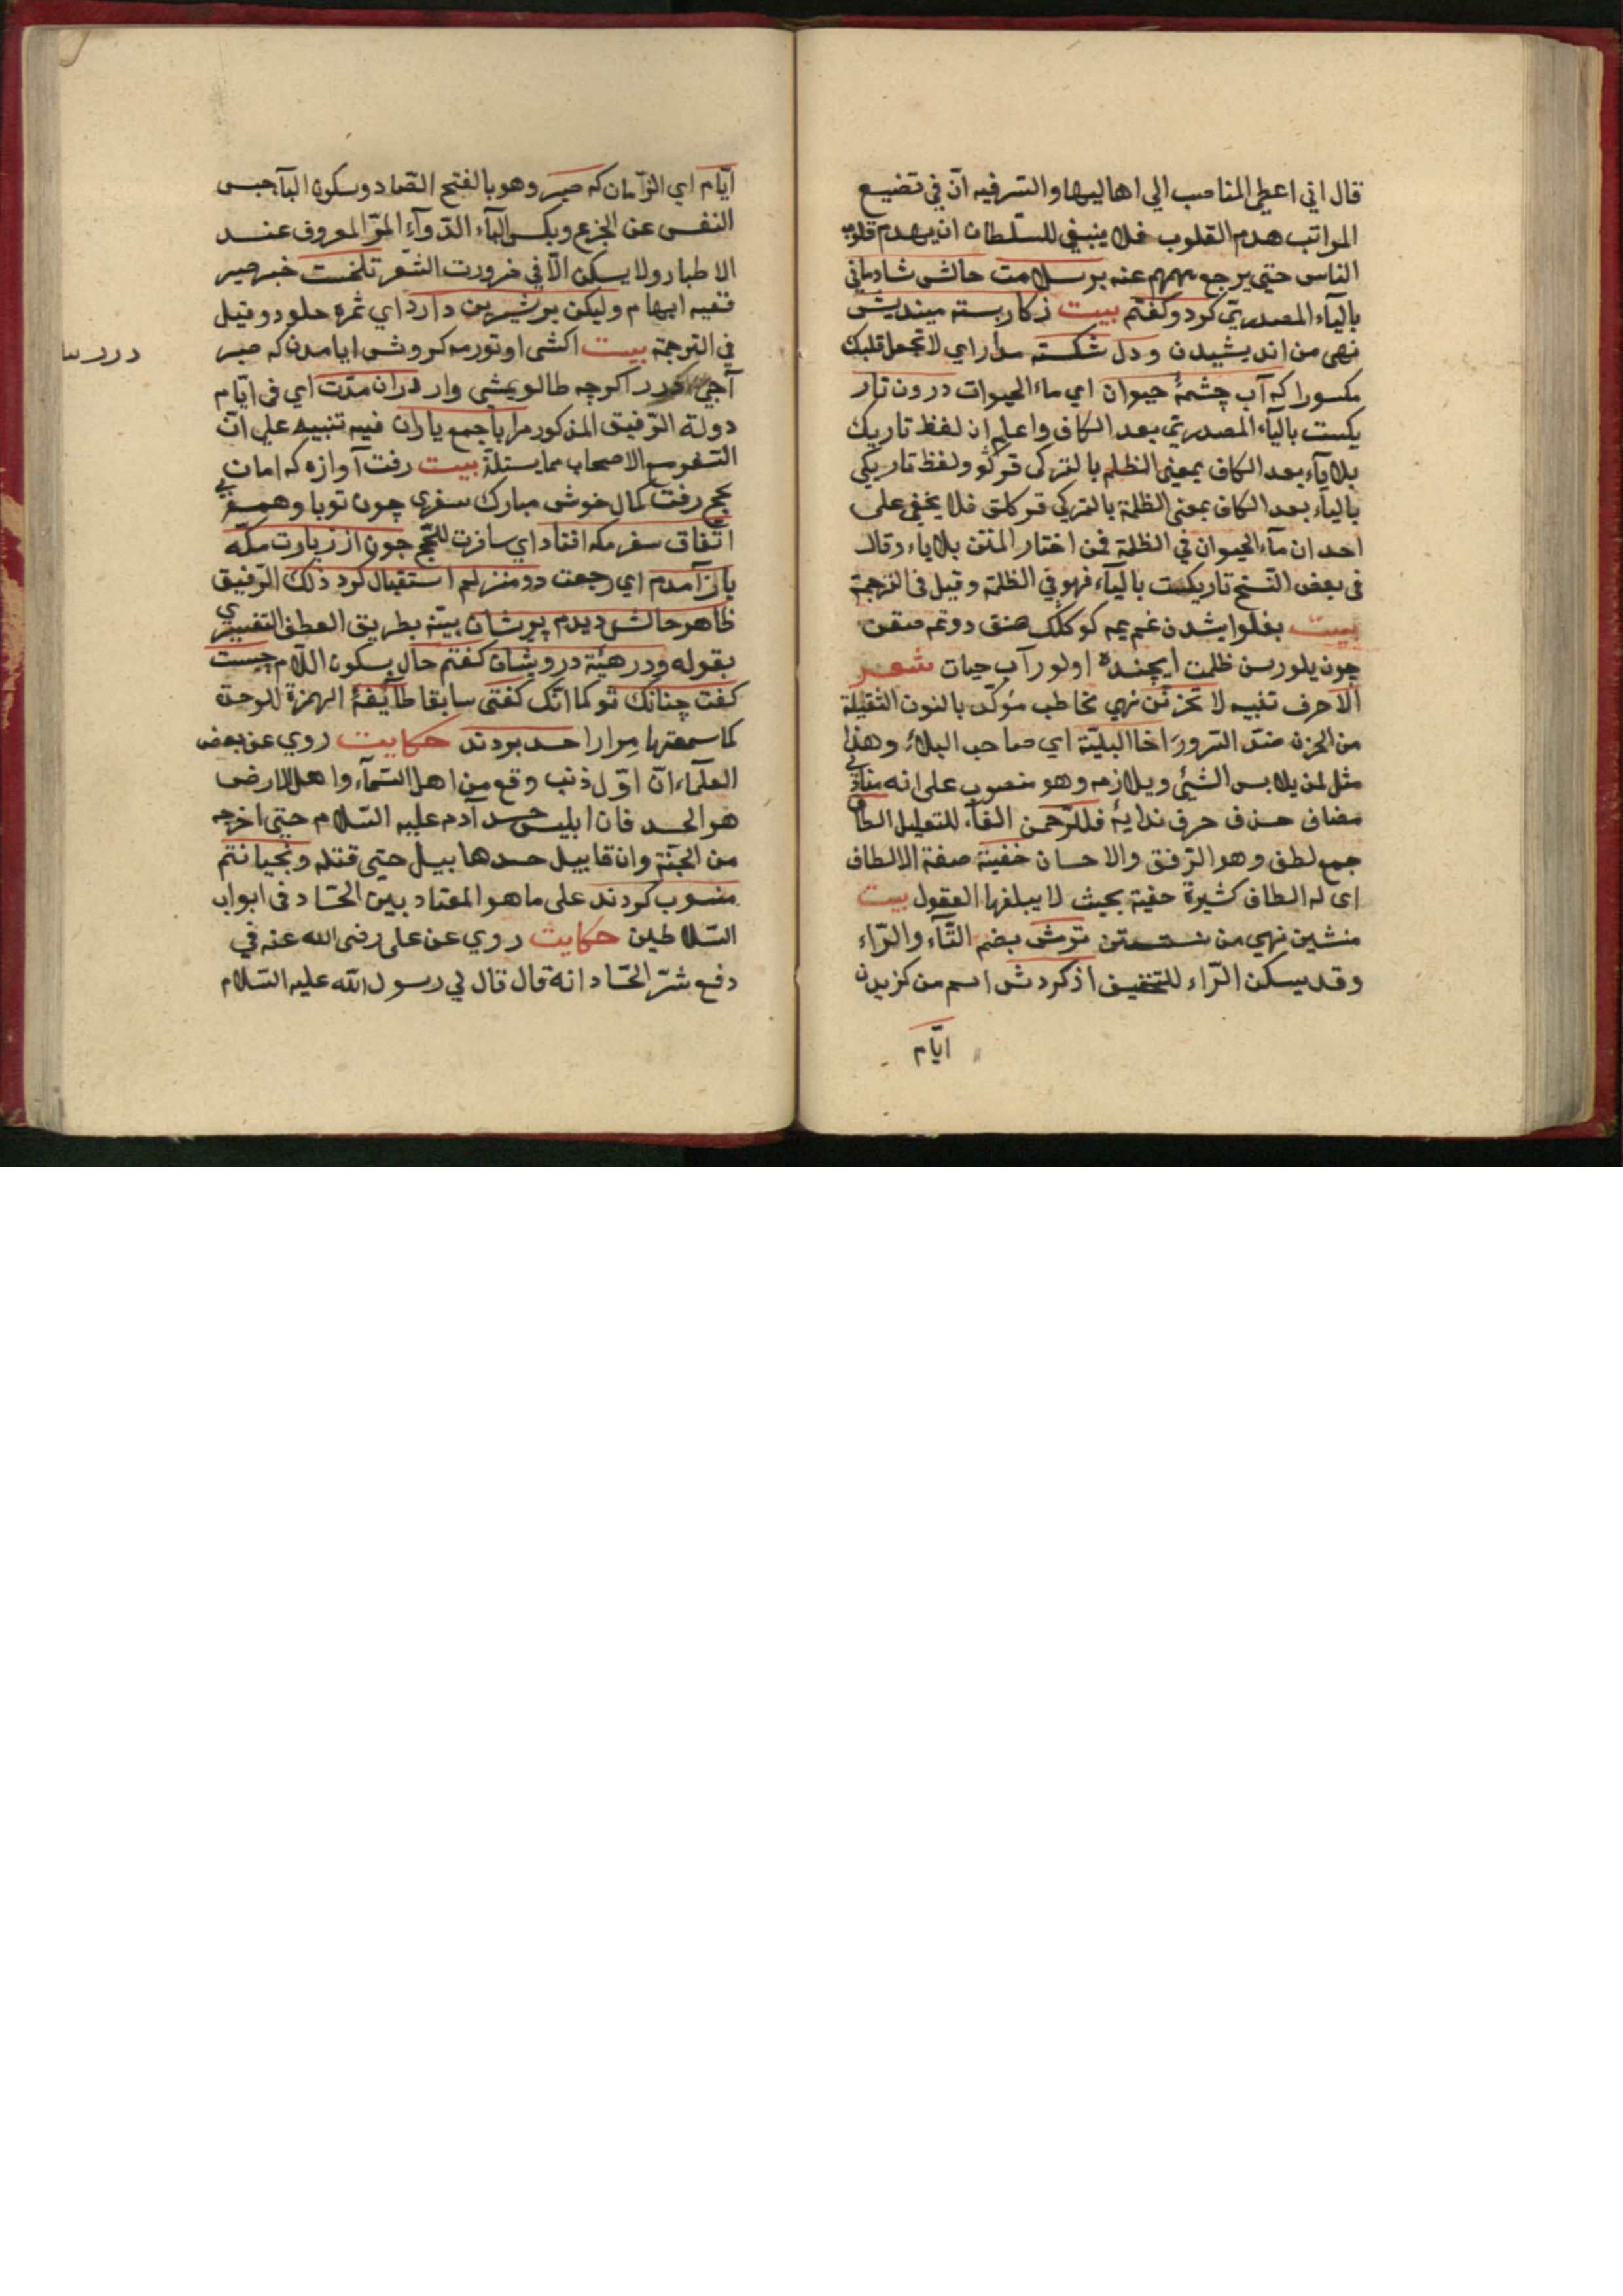 قال اني اعطي المناصب الي اهاليها والسر فيه ان في تضييع
المراتب هدم القلوب فلا ينبغي للسلطان ان يهدم قلوب
الناس حتي يرجع همهم عنه بر سلامت حالش شادماني
بالياء المصدرية كرد وكفتم بيت ز كار بسته مينديش
نهى من انديشيدن و دل شكسته مدار اي لا تجعل قلبك
مكسورا كه آب چشمهٔ حيوان اي ماء الحيوات درون تار
يكست بالياء المصدرية بعد الكاف واعلم ان لفظ تاريك
بلا ياء بعد الكاف بمعنى المظلم بالتركى قركو ولفظ تاريكي
بالياء بعد الكاف بمعنى الظلمة بالتركي قركلق فلا يخفي على
احد ان ماء الحيوان في الظلمة فمن اختار المتن بلا ياء وقال
فى بعض النسخ تاريكيست بالياء فهو في الظلمة وقيل فى الترجمة
بيت بغلو ايشدن غم يمه كوكلك صنق دوتمه صقن
چون بلورسن ظلمت ايچنده اولور آب حيات شعر
ألا حرف تنبيه لا تحزنن نهي مخاطب مؤكد بالنون الثقيلة
من الحزن ضد السرور اخا البلية اي صاحب البلاء وهذا
مثل لمن يلابس الشئ ويلازمه وهو منصوب على انه منادي
مضاف حذف حرف ندايه فللرحمن الفاء للتعليل الطاف
جمع لطف وهو الرفق والاحسان خفية صفة الالطاف
اى له الطاف كثيرة خفية بحيث لا يبلغها العقول بيت
منشين نهي من نشستن ترش بضم التاء والراء
وقد يسكن الراء للتخفيف از كردش اسم من كزيدن
ايام
ايام اي الزمان كه صبر وهو بالفتح الصاد وسكون الباء حبس
النفس عن الجزع وبكسر الباء الدواء المر المعروف عند
الاطبار ولا يسكن الا في ضرورت الشعر تلخست خبر صبر
ففيه ابهام وليكن بر شيرين دارد اي ثمره حلو دو قيل
في الترجمة بيت اكشى اوتورمه كردش ايامدن كه صبر
آجي در اكرچه طالو يمشى وار در ان مدت اي فى ايام
دولة الرفيق المذكور مرا با جمع ياران فيه تنبيه علي ان
السفر مع الاصحاب مما يستلذ بيت رفت آوازه كه امان
بحج رفت كمال خوش مبارك سفري چون تو با وهمسفري
اتفاق سفر مكه افتاد اي سافرت للحج چون از زيارت مكه
باز آمدم اي رجعت دو منزلم استقبال كرد ذلك الرفيق
ظاهر حالش ديدم پريشان بينه بطريق العطف التفسيري
بقوله ودر هيئة درويشان كفتم حال بسكون اللام چيست
كفت چنانك تو كما انك كفتى سابقا طائفهٔ الهمزة للوحدة
كما سمعتها مرارا حسد بردند حكايت روي عن بعض
العلماء ان اول ذنب وقع من اهل السماء واهل الارض
هو الحسد فان ابليس حسد آدم عليه السلام حتى اخرجه
من الجنة وان قابيل حسد هابيل حتى قتله وبخيانتم
منسوب كردند على ما هو المعتاد بين الحساد فى ابواب
السلاطين حكايت روي عن على رضى الله عنه في
دفع شر الحساد انه قال قال لي رسول الله عليه السلام